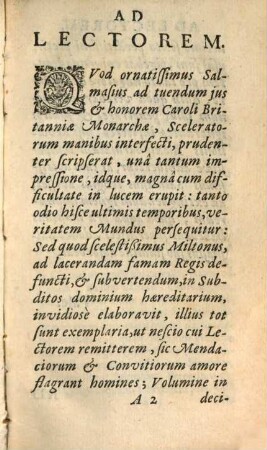 AD
LECTOREM.
QVod ornatissimus Sal-
masius ad tuendum jus
& honorem Caroli Bri-
tanniæ Monarchæ, Scelerato-
rum manibus interfecti, pruden-
ter scripserat, unâ tantum im-
pressione, idque, magnâ cum dif-
ficultate in lucem erupit: tanto
odio hisce ultimis temporibus, ve-
ritatem Mundus persequitur:
Sed quod scelestissimus Miltonus,
ad lacerandam famam Regis de-
functi, & subvertendum, in Sub-
ditos dominium hæreditarium,
invidiosè elaboravit, illius tot
sunt exemplaria, ut nescio cui Le-
ctorem remitterem, sic Menda-
ciorum & Convitiorum amore
flagrant homines; Volumine in
A 2 deci-